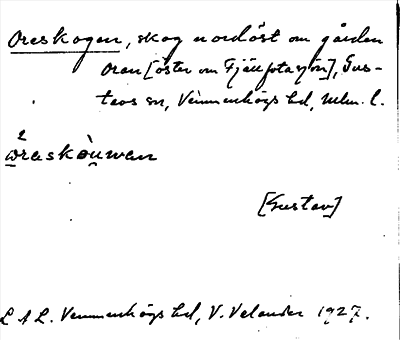 Oreskogen, skog nordöst om gården
Oren [öster om Fjällfotasjön], Gus-
tavs sn, Vemmenhögs hd, Mlm. l.
2
[Gustav]
L A L. Vemmenhögs hd, V. Velander 1927.